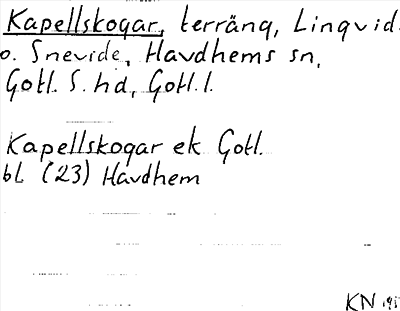 Kapellskogar, terräng, Linqvid.
o. Snevide, Havdhems sn,
Gotl. S. hd, Gotl. l.
Kapellskogar ek Gotl.
bl (23) Havdhem
KN